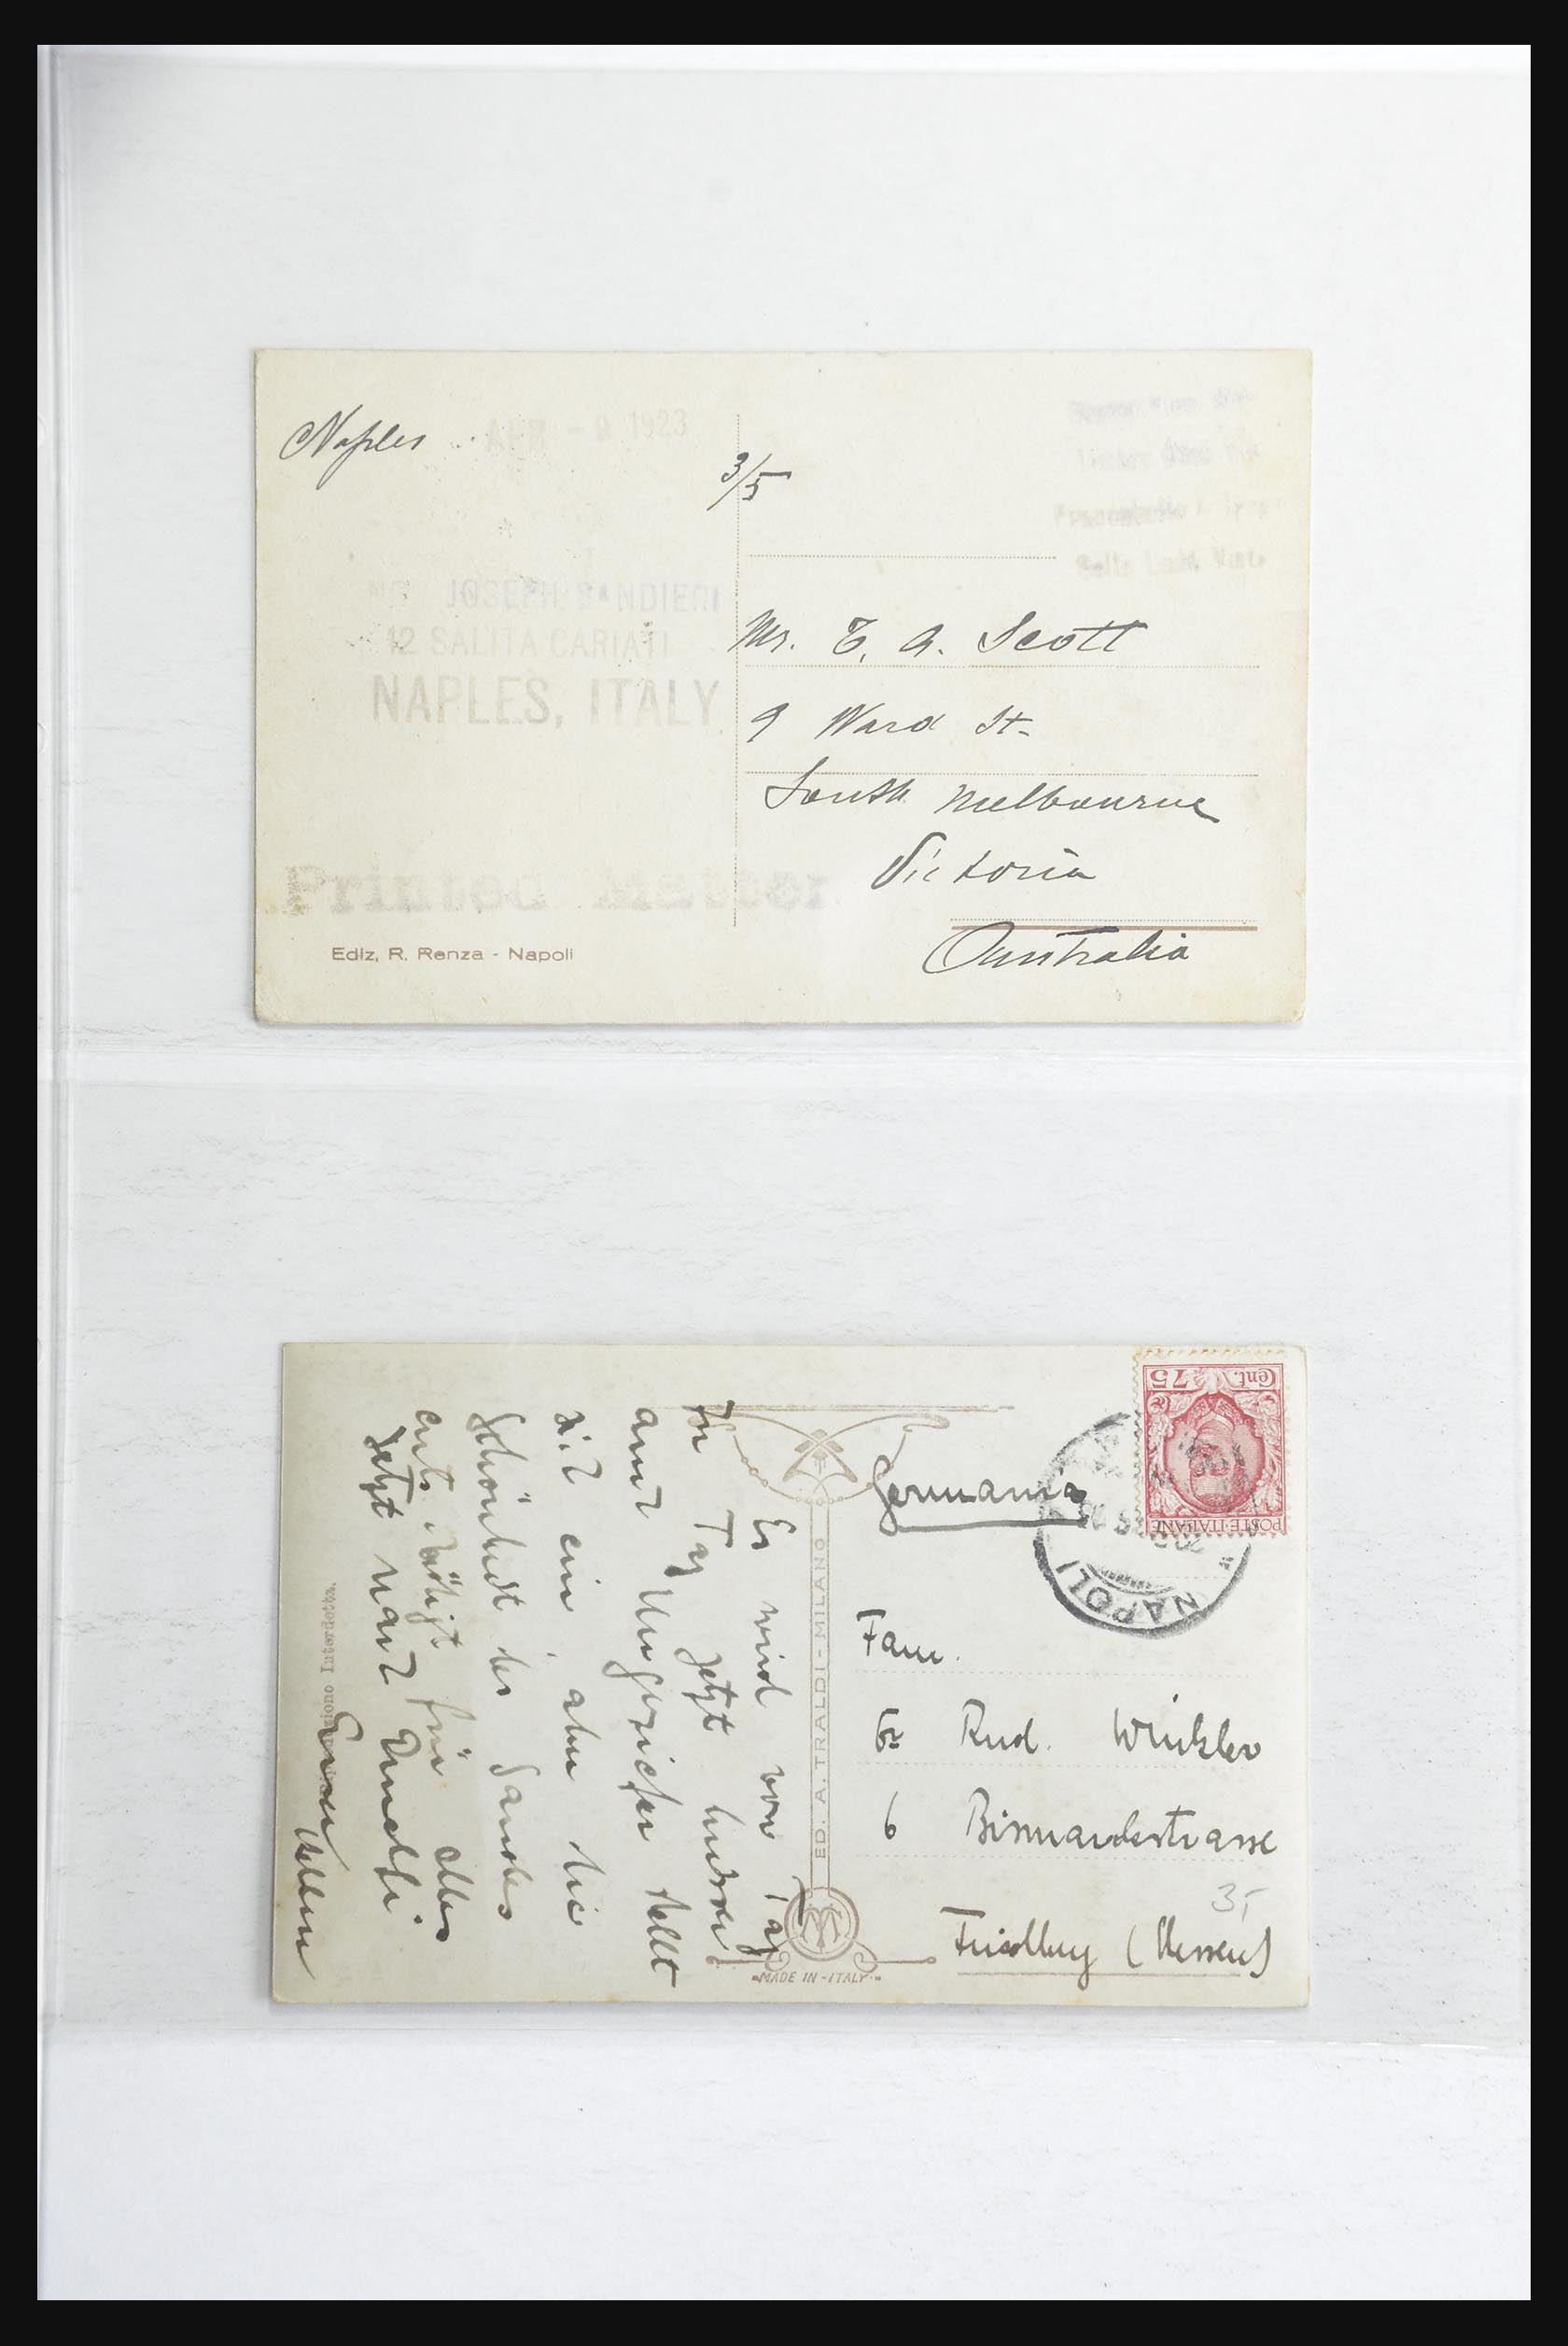 Naples
APR - 9 1923
3/5
JOSEPH BANDIERI
12 SALITA CARIATI
NAPLES, ITALY
Mr. T. A. Scott
9 Ward St.
South Melbourne
Victoria
Australia
Printed Matter
Ediz. R. Renza - Napoli
Cent. 75
POSTE ITALIANE
NAPOLI
Germania
Fam.
Rud. Winkler
6 Bismarckstrasse
35
Friedberg (Hessen)
ED. A. TRALDI - MILANO
MADE IN ITALY
Es wird von Tag
zu Tag jetzt
auch Ungeziefer stellt
sich ein, aber die
Schönheit des Landes
für alles
Jetzt nach
Interdetta